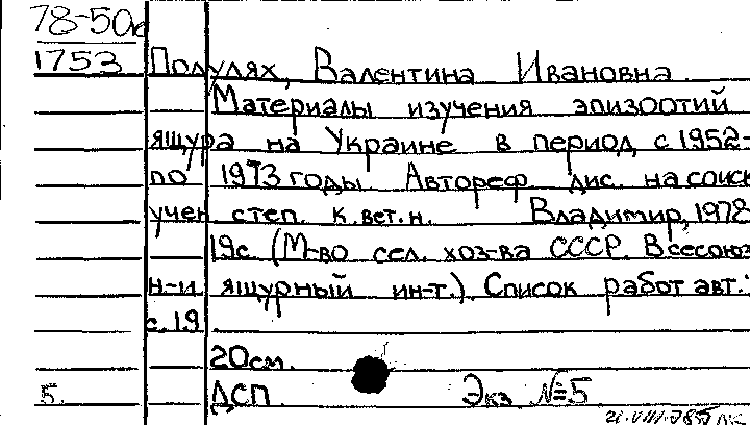 78-50
1753 Полулях, Валентина Ивановна.
Материалы изучения эпизоотий
ящура на Украине в период с 1952-
по 1973 годы. Автореф. дис. на соиск
учен степ. к.вет.н. Владимир, 1978
19с (М-во сел. хоз-ва СССР. Всесоюз
н-и ящурный ин-т.). Список работ авт.:
с.19
20см.
5. ДСП. Экз №5